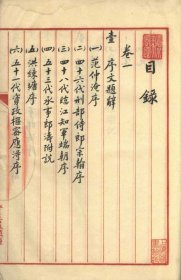 目錄
卷一
壹 序文題解
(一) 范仲淹序
(二) 四十六代刑部侍郎宗翰序
(三) 四十八代臨江知軍端朝序
(四) 五十三代承事郎濤附說
(五) 洪 序
(六) 五十一代資政 應得序